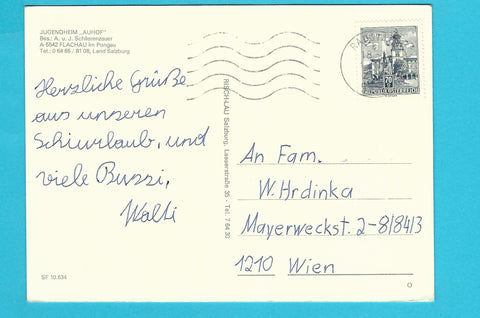 JUGENDHEIM „AUHOF"
Bes.: A. u. J. Schlierenzauer
A-5542 FLACHAU im Pongau
Tel.: 0 64 65 / 81 08, Land Salzburg
Herzliche Grüße
aus unseren
Schiurlaub, und
viele Bussi,
Walti
RISCH-LAU Salzburg, Lasserstraße 35 - Tel. 7 64 30
REPUBLIK ÖSTERREICH
An Fam.
W. Hrdinka
Mayerweckst. 2-8/84/3
1210 Wien
SF 10.634